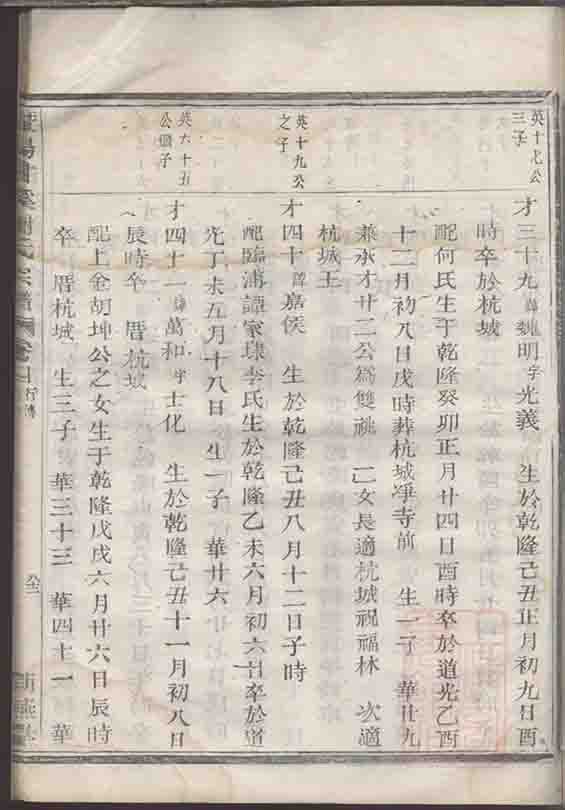 英十九公
三子
才三十九諱魏明字光義 生於乾隆己丑正月初九日酉
時卒於杭城
配何氏生于乾隆癸卯正月廿四日酉時卒於道光乙酉
十二月初八日戌時葬杭城凈寺前 生一子 華廿九
兼承才廿二公爲雙祧 二女長適杭城祝福林 次適
杭城王
英十九公
之子
才四十諱嘉侯 生於乾隆己丑八月十二日子時
配臨浦譚家埭李氏生於乾隆乙未六月初六日卒於道
光丁未五月十八日 生一子 華廿六
英六十五
公儤子
才四十一諱萬和字士化 生於乾隆己丑十一月初八日
辰時卒 厝杭城
配上金胡坤公之女生于乾隆戊戌六月廿六日辰時
卒 厝杭城 生三子 華三十三 華四十一 華
謝氏宗譜 卷
行傳